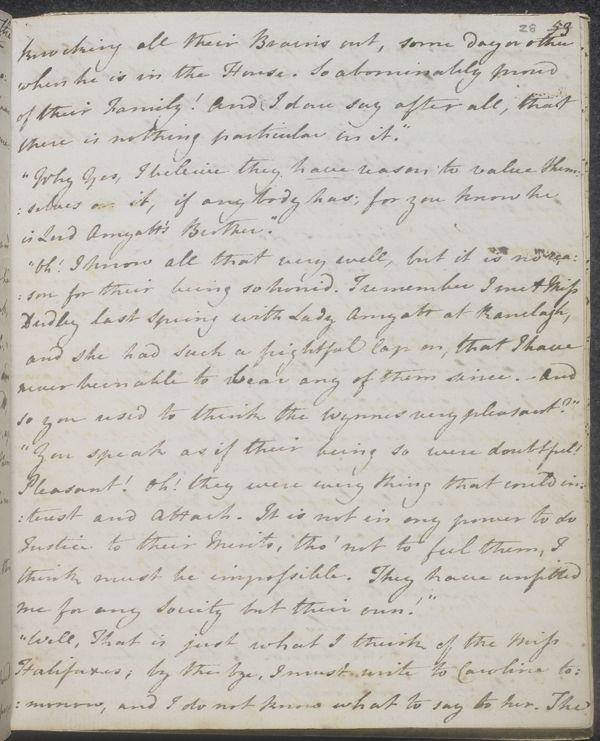 28 53
knocking all their Brains out, some day or other
when he is in the House. So abominably proud
of their Family! And I dare say after all, that
there is nothing particular in it."
"Why Yes, I beleive they have reason to value them:
:selves on it, if any Body has; for you know he
is Lord Amyatt's Brother."
"Oh! I know all that very well, but it is no rea:
:son for their being so horrid. I remember I met Miss
Dudley last spring with Lady Amyatt at Ranelagh,
and she had such a frightful Cap on, that I have
never been able to bear any of them since. - And
so you used to think the Wynnes very pleasant?"
"You speak as if their being so were doubtful!
Pleasant! Oh! they were every thing that could in:
:terest and Attach. It is not in my power to do
Justice to their Merits, tho' not to feel them, I
think must be impossible. They have unfitted
me for any Society but their own!"
"Well, That is just what I think of the Miss
Halifaxes; by the bye, I must write to Caroline to:
:morrow, and I do not know what to say to her. The